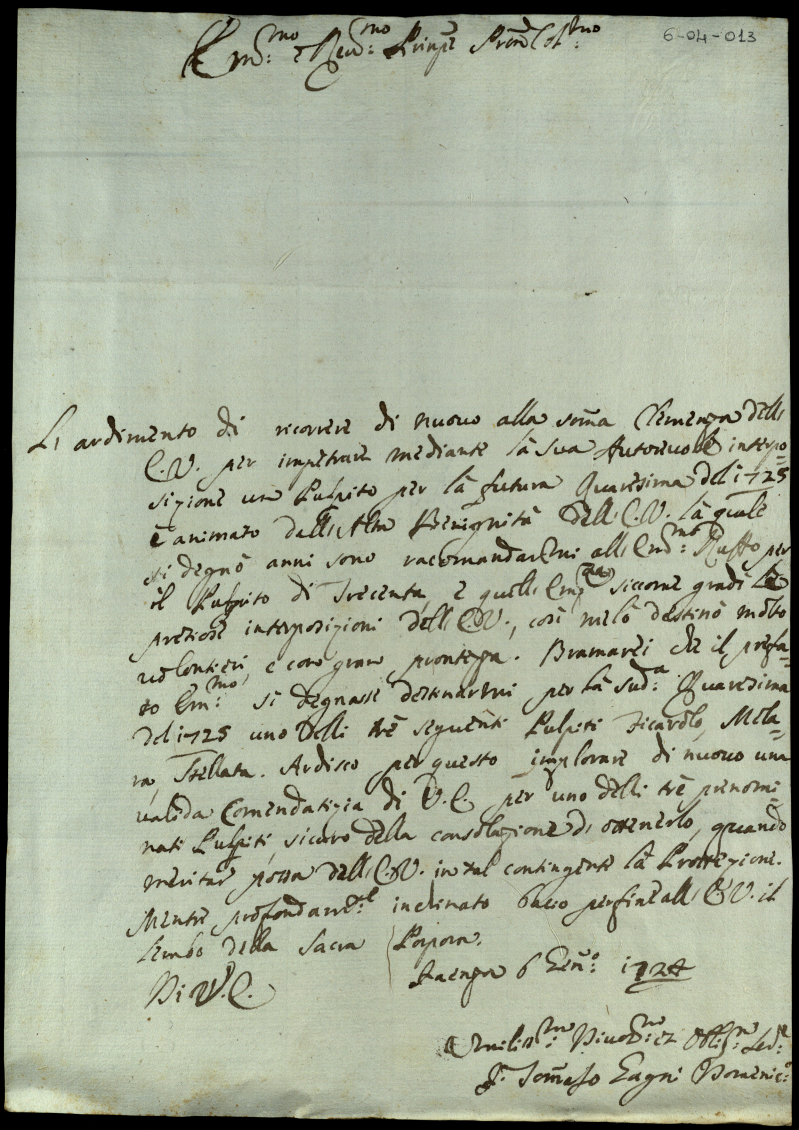 6-04-013
Em:mo e Rev:mo Prinpe Prone Col:mo
L'ardimento di ricorrere di nuovo alla somã Clemenza dell'
E.V. per impetrare mediante la sua Autorevole interpo=
sizione un Pulpito per la futura Quaresima del 1725
è animato dall'Alta Benignità dell'E.V. la quale
si degnò anni sono racomandarmi all'Em:mo Ruffo per
il Pulpito di Trecenta, e quell'Emza siccome gradì le
preziose interposizioni dell'E.V., così me lo destinò molto
volontieri, e con gran prontezza. Bramarei che il prefa=
to Em:mo si degnasse destinarmi per la sud:a Quaresima
del 1725 uno delli trè seguenti Pulpiti Ficarolo, Mela=
ra, Stellata. Ardisco per questo implorare di nuovo una
valida Comendatizia di V.E. per uno delli trè prenomi=
nati Pulpiti, sicuro della consolazione di ottenerlo, quando
meritar possa dall'E.V. in tal contingente la Protezione.
Mentre profondamte inclinato bacio per fine all'E.V. il
lembo della Sacra Porpora.
Di V.E.
Faenza 6 Gen:o 1724
Umilis:mo Divot:mo et Obblig:mo Ser:e
F. Tomaso Domenic:o